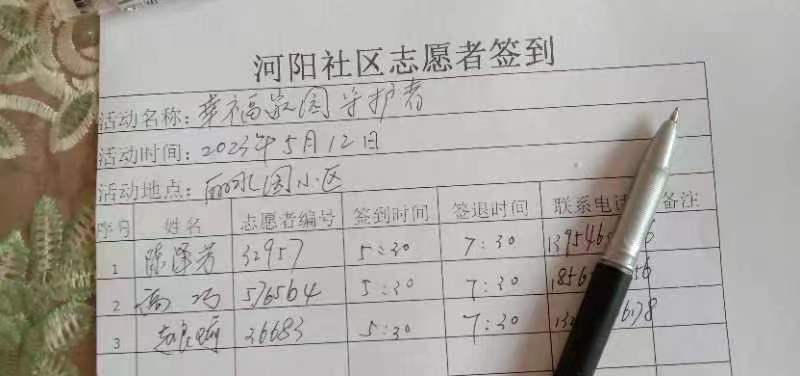 河阳社区志愿者签到
活动名称：幸福家园守护者
活动时间：2023年5月12日
活动地点：丽水园小区
序号 姓名 志愿者编号 签到时间 签退时间 联系电话 备注
1 陈泽芳 32957 5:30 7:30
2 576564 5:30 7:30
3 36683 5:30 7:30